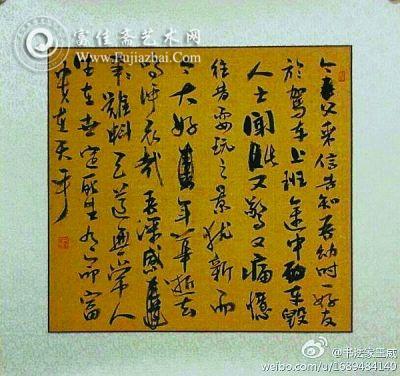 富佳斋艺术网
www.Fujiazhai.com
今父来信告知吾幼时一好友
於驾车上班途中车毁
人士闻此又惊又痛忆
往昔耍玩之景犹新而
今大好年华逝去
呜呼哀哉吾深感
事难料天道无常人
生在世命富
贵在天乎
@书法家王威
weibo.com/u/1689484140